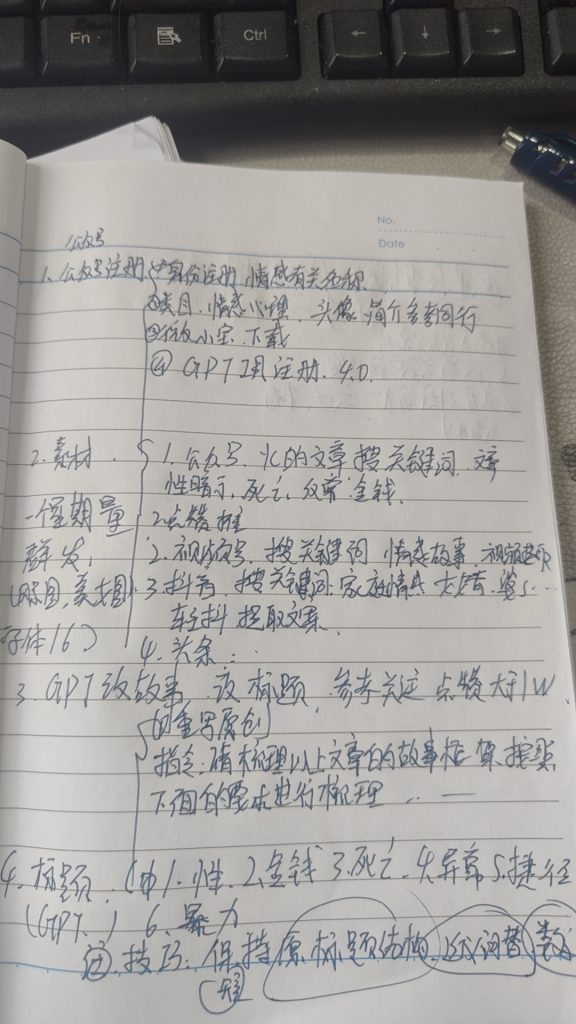 Fn
Ctrl
← ↓ →
No.
Date
公众号
1. 公众号注册 ①身份注册 情感有关名称
②类目, 情感心理, 头像 简介参考同行
下载
④ GPT 4.0 注册. 4.0
2. 素材 1. 公众号. 的文章搜关键词.
性暗示, 死亡, 金钱.
一个星期量 2. 点赞
群发, 2. 视频号, 搜关键词 情感故事
3. 抖音, 搜关键词. 家庭情感
字体16) 轻抖 提取文案
4. 头条
3. GPT改故事 改标题, 参考关注 点赞大于1W
的重写原创
指令: 请梳理以上文章的故事框架, 按照
下面的要求进行梳理 ... —
4. 标题. 1. 性. 2. 金钱 3. 死亡. 4. 异常 5. 捷径
(GPT.) 6. 暴力
技巧: 保持原标题结构, 词替